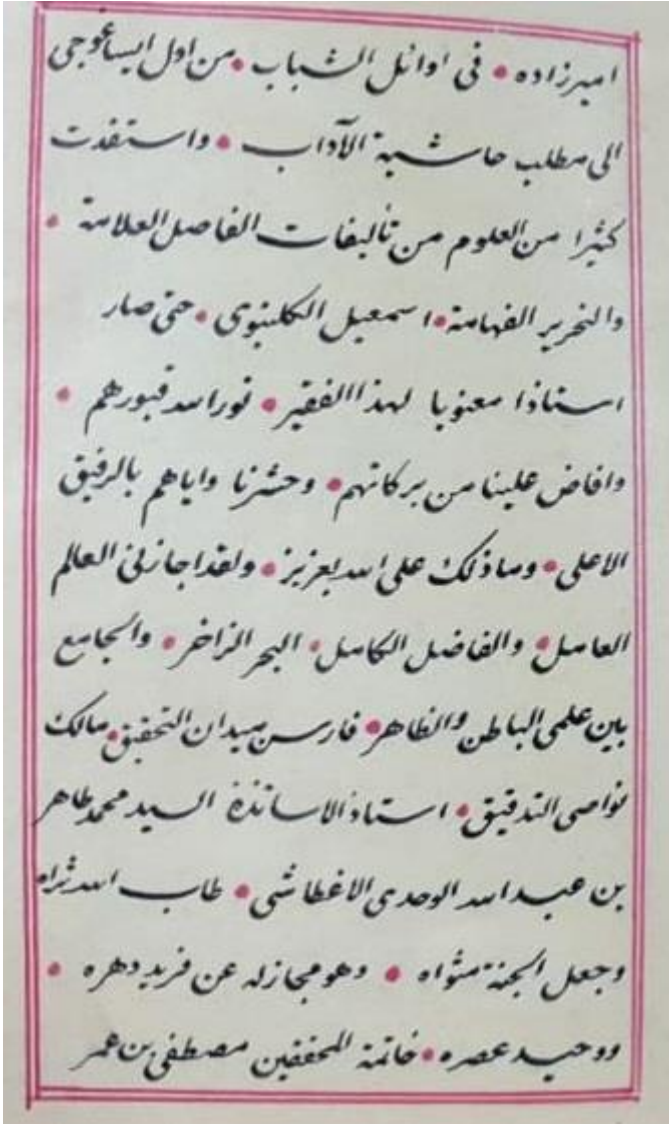 اميرزاده • فى اوائل الشباب • من اول ايساغوجى
الى مطلب حاشية الآداب • واستفدت
كثيرا من العلوم من تأليفات الفاضل العلامة •
والنحرير الفهامة • اسمعيل الكلنبوى • حتى صار
استاذا معنويا لهذا الفقير • نور الله قبورهم •
وافاض علينا من بركاتهم • وحشرنا واياهم بالرفيق
الاعلى • وما ذلك على الله بعزيز • ولقد اجازنى العالم
العامل • والفاضل الكامل • البحر الزاخر • والجامع
بين علمى الباطن والظاهر • فارس ميدان التحقيق • مالك
نواصى التدقيق • استاذ الاساتذة السيد محمد طاهر
بن عبد الله الوحدى الاغطاشى • طاب الله ثراه
وجعل الجنة مثواه • وهو مجاز له عن فريد دهره •
ووحيد عصره • خاتمة المحققين مصطفى بن عمر